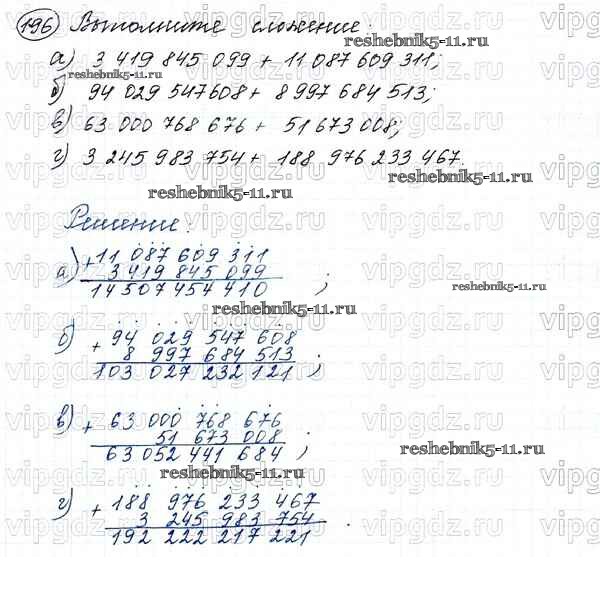 196 Выполните сложение:
reshebnik5-11.ru
а) 3 419 845 099 + 11 087 609 311;
reshebnik5-11.ru
б) 94 029 547 608 + 8 997 684 513;
в) 63 000 768 676 + 51 673 008;
г) 3 245 983 754 + 188 976 233 467.
reshebnik5-11.ru
Решение:
а) + 11 087 609 311
3 419 845 099
14 507 454 410 ;
reshebnik5-11.ru
reshebnik5-11.ru
б) + 94 029 547 608
8 997 684 513
103 027 232 121 ;
в) + 63 000 768 676
51 673 008
63 052 441 684 ;
reshebnik5-11.ru
reshebnik5-11.ru
г) + 188 976 233 467
3 245 983 754 .
192 222 217 221
vipgdz.ru